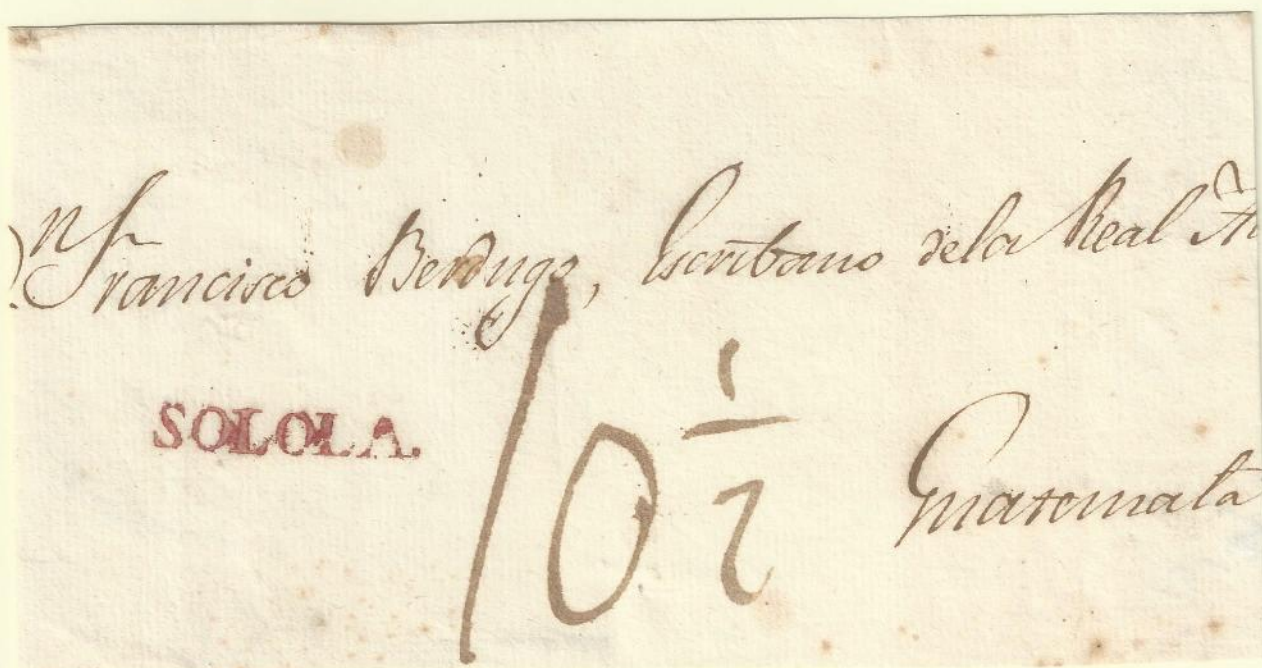 Dn Francisco Berdugo, Escribano dela Real
SOLOLA.
10 1/2
Guatemala